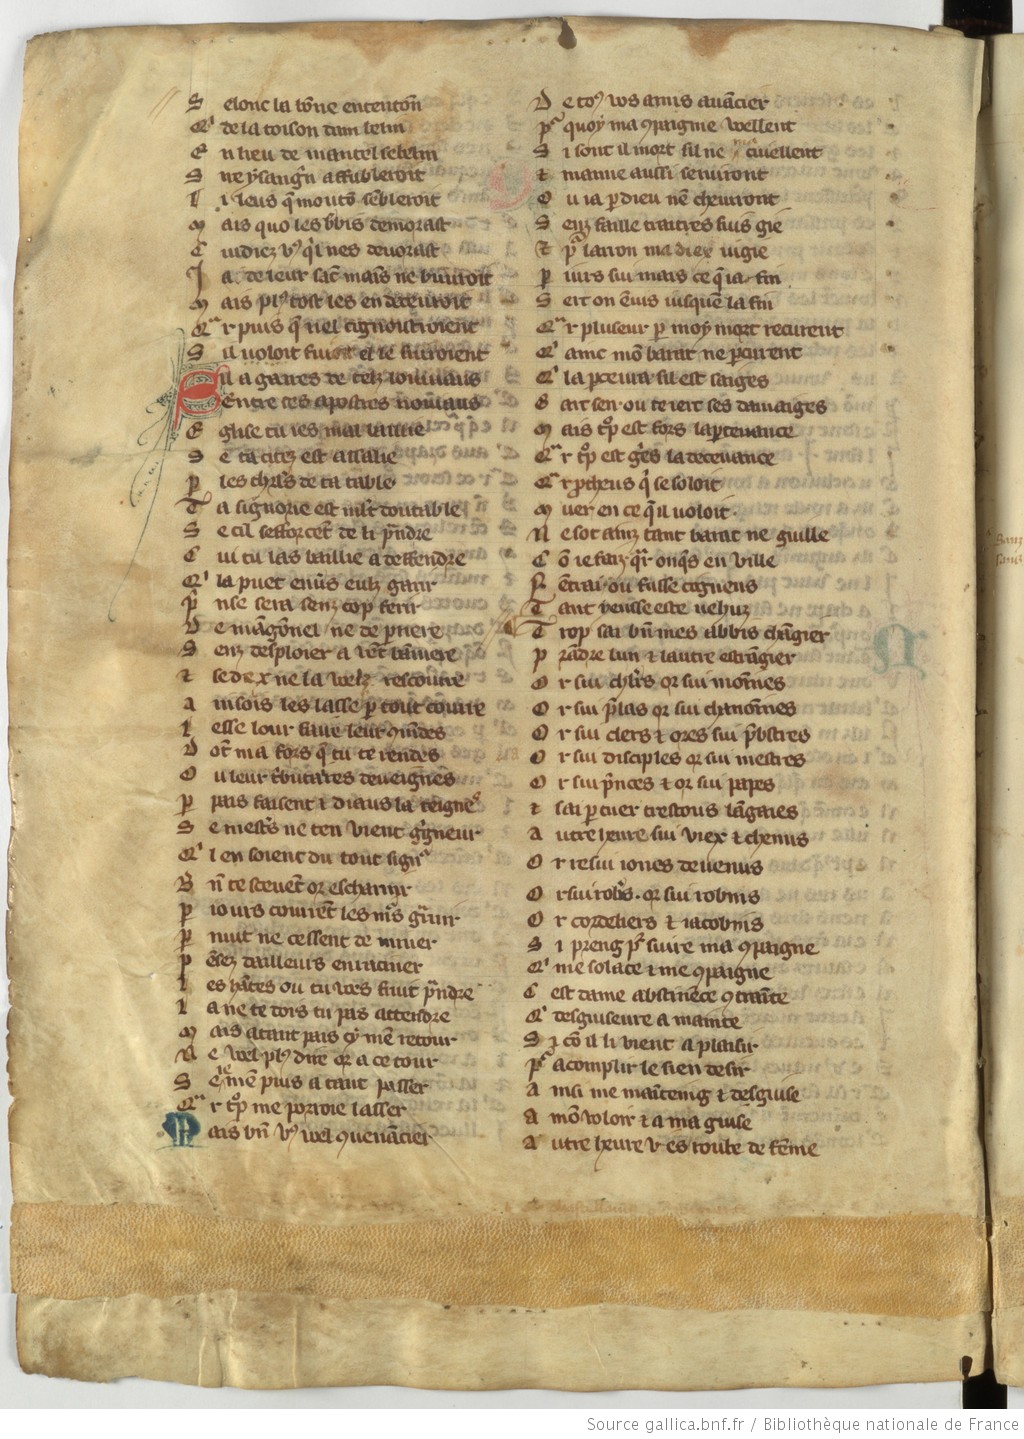 S elonc la bone entention
Q' de la toison dam belin
E n lieu de mantel sebelin
S ire ysangrin affubleroit
L i leus q̄ mouton sēbleroit
M ais quo les b'bis demorast
C uidiez v9 q'l nes devorast
J a de leur sanc mains ne buvroit
M ais pl9 tost les en decevroit
Q'r puis q̄ nel cignoistroient
S il voloit fuir et le suiroient
S il a gaires de telz lovivaus
Entre ces apostres noviaus
E glise tu ies mal baillie
S e ta citez est assaillie
P les ch'l's de ta table
T a signorie est m'lt doutable
S e cil sefforcēt de li p̄ndre
C ui tu las baillie a deffendre
Q' la puet envs eulz garir
P nse sera senz cop ferir
D e māgōnel ne de priere
S enz desploier a vēt bāniere
⁊ se dex ne la welz rescourre
A insois les lasse p tout courre
L esse
D ōt ma fors q̄ tu te rendes
O u leur t'butaires deveignes
P pais faisent ⁊ diaus la teignes
S e mest's ne ten vient g'gneur
Q' l en soient du tout sign'
B n̄ te sevēt or escharnir
P iours courēt les m's garnir
P nuit ne cessent de miner
P ēsez dailleurs enraciner
L es hātes ou tu wes fruit p̄ndre
L a ne te dois tu pas attendre
M ais atant pais cy mē retour
N e wel pl9 dire or a ce tour
S e ie mē puis a tant passer
Q'r t'p me porroie lasser
M ais bn̄ v9 wel 9venācier
D e to9 vos amis avācier
P' quoy ma 9paignie wellent
S i sont il mort sil ne m'acuellent
⁊ mamie aussi serviront
O u ia p dieu nē chevriront
S enz faille traitres suis gie
⁊ p' larron ma diex iugie
P iurs sui mais ce q̄ ia fin
S eit on ēvis iusquen la fin
Q'r pluseur p moy mort recurent
Q' ainc mō barat ne pcurent
Q' la pcevra sil est saiges
G art sen ou ce iert ses damaiges
M ais t'p est fors la pcevance
Q'r t'p est g'es la decevance
Q'r protheus q' se soloit
M uer en ce q̄ il voloit
N e sot ainz tant barat ne guille
C ō ie faiz q'r onq̄s en ville
N ētrai ou fusse cogneus
T ant veusse este vehuz
T rop sai bn̄ mes abbis chāgier
P rādre lun ⁊ lautre estrāgier
O r sui ch'l's or sui moines
O r sui p̄las or sui chanoines
O r sui clers ⁊ ores sui p̄bstres
O r sui disciples or sui mestres
O r sui p̄nces ⁊ or sui papes
⁊ sai p cuer trestous lāgaiges
A utre heure sui viex ⁊ chenus
O r resui iones devenus
O r sui rob's. or sui robins
O r cordeliers ⁊ iacobins
S i preng p' suire ma 9paigne
Q' me solace ⁊ me 9paigne
C est dame abstinēce 9trainte
Q' desguiseure a mainte
S i cō il li vient a plaisir
P' acomplir le sien desir
A insi me maītenig ⁊ desguise
A mō voloir ⁊ a ma guise
A utre heure vēs roube de fēme
Source gallica.bnf.fr / Bibliothèque nationale de France